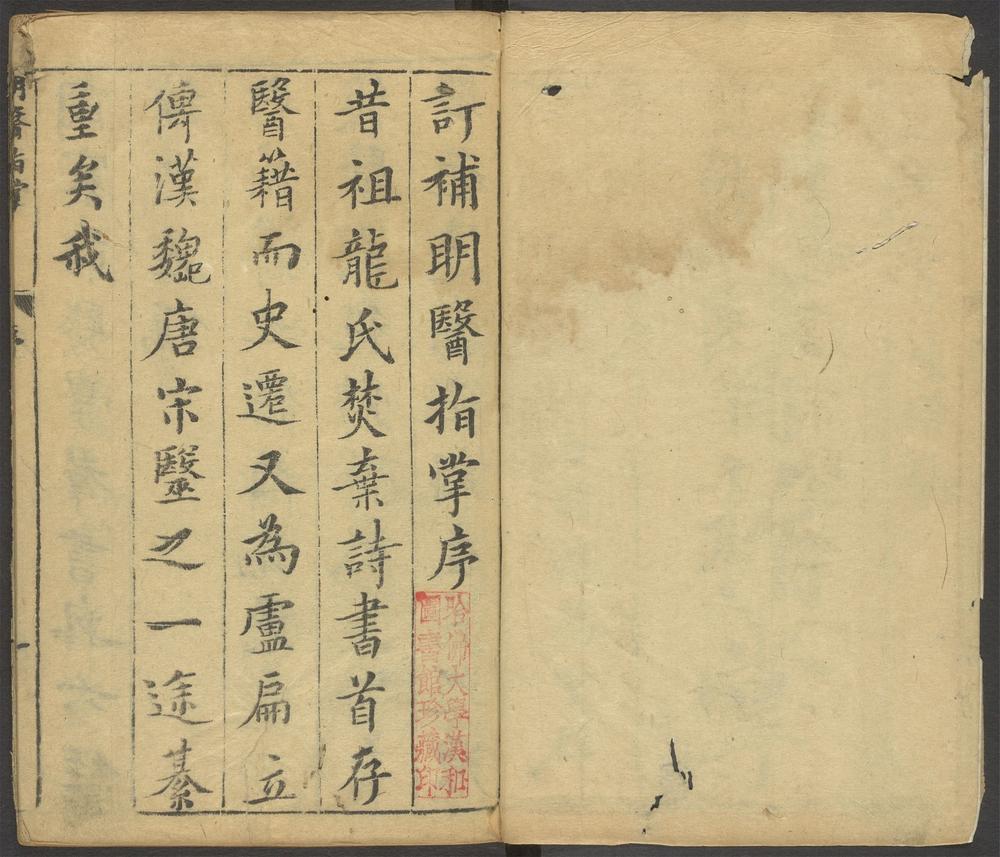 訂補明醫指掌序
哈佛大學漢和
圖書館珍藏印
昔祖龍氏焚棄詩書首存
醫籍而史遷又為盧扁立
傳漢魏唐宋毉之一途綦
重矣我
明醫指掌
序
一